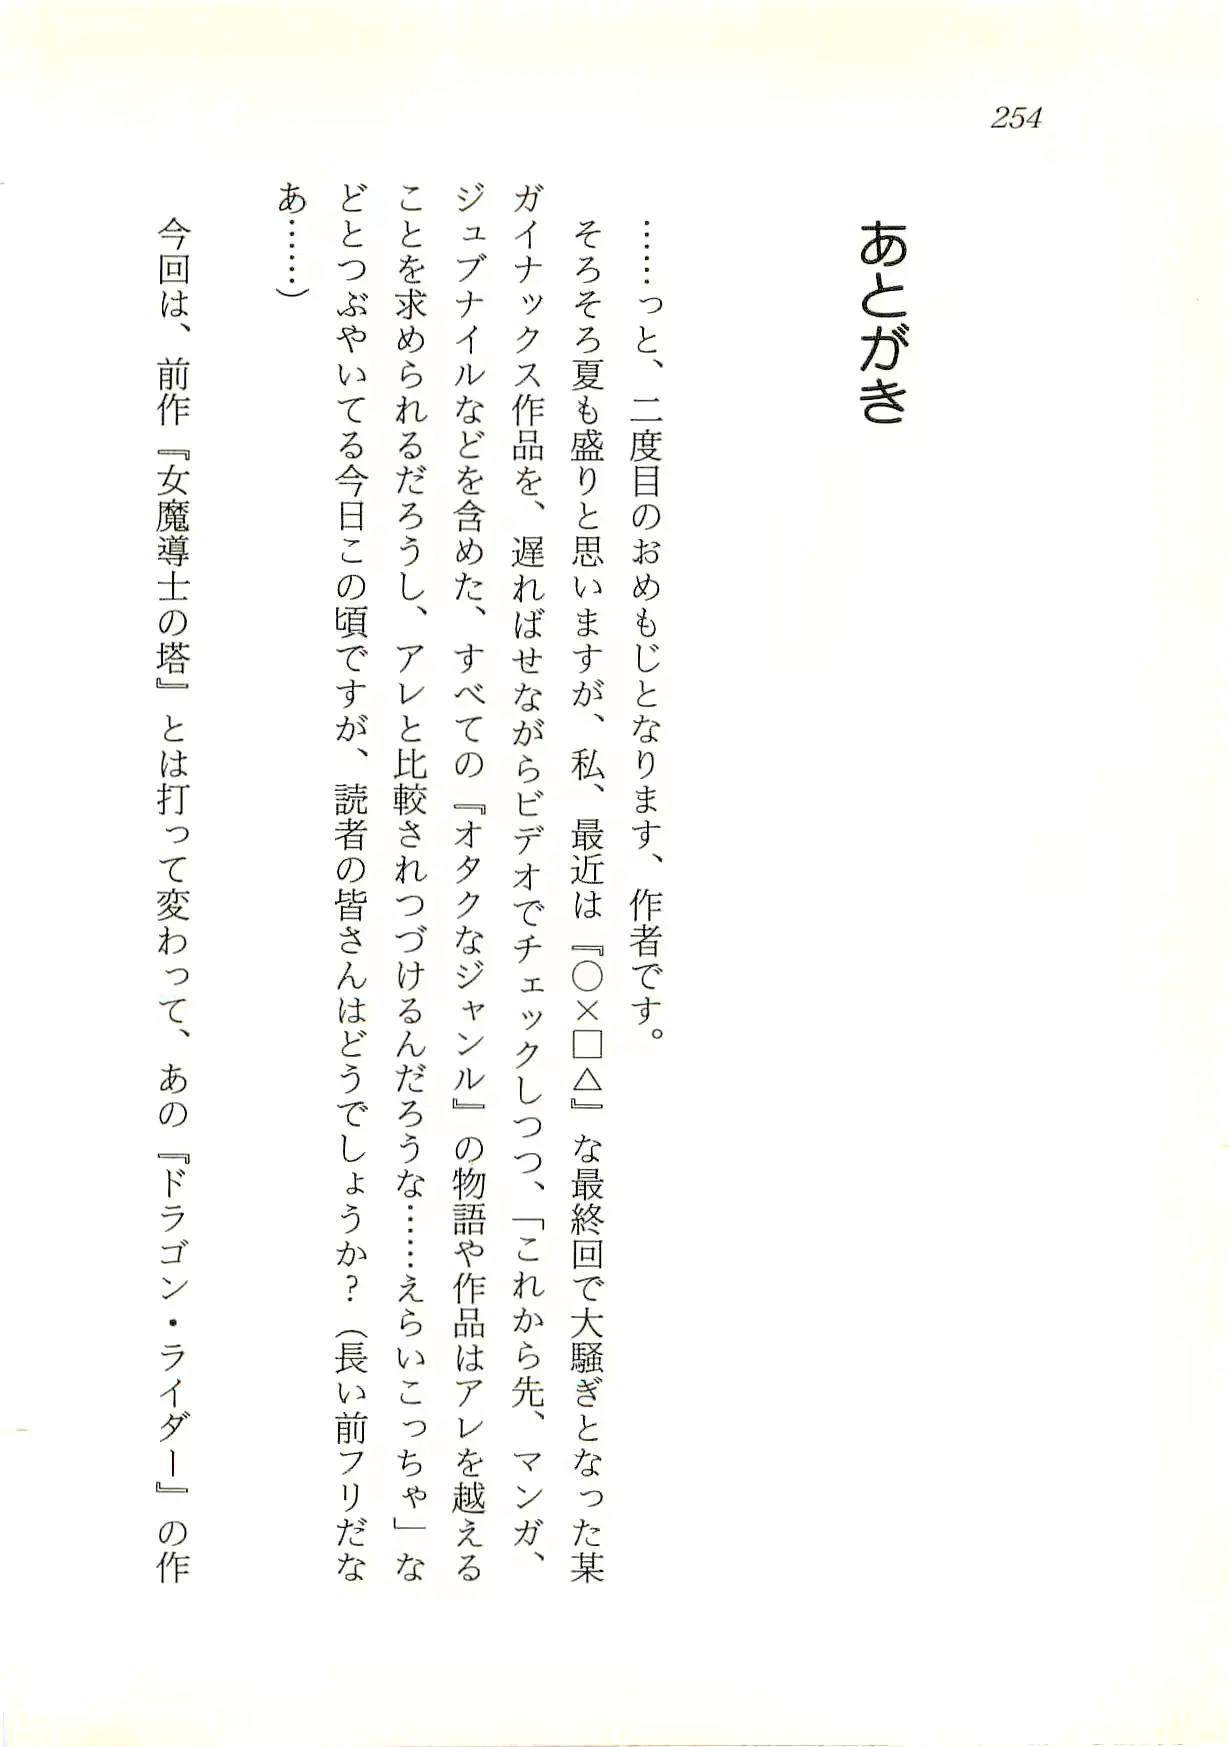 254
あとがき
……っと、二度目のおめもじとなります、作者です。
そろそろ夏も盛りと思いますが、私、最近は『○×□△』な最終回で大騒ぎとなった某
ガイナックス作品を、遅ればせながらビデオでチェックしつつ、「これから先、マンガ、
ジュブナイルなどを含めた、すべての『オタクなジャンル』の物語や作品はアレを越える
ことを求められるだろうし、アレと比較されつづけるんだろうな……えらいこっちゃ」な
どとつぶやいてる今日この頃ですが、読者の皆さんはどうでしょうか？（長い前フリだな
あ……）
今回は、前作『女魔導士の塔』とは打って変わって、あの『ドラゴン・ライダー』の作